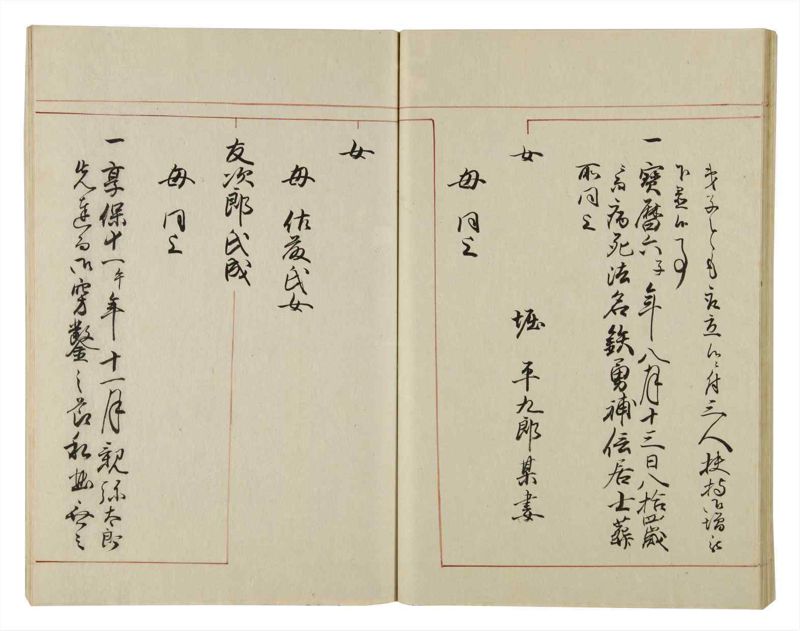 弟子とも取立候ニ付三人扶持御増被
下置候事
一寶暦六子年八月十三日八拾四歳
ニ而病死法名鉄勇補伝居士葬
所同上
女　堀平九郎某妻
母同上
女
母佐藤氏女
友次郎氏成
母同上
一享保十一午年十一月親弥太郎
先達而御穿鑿之節私曲無之